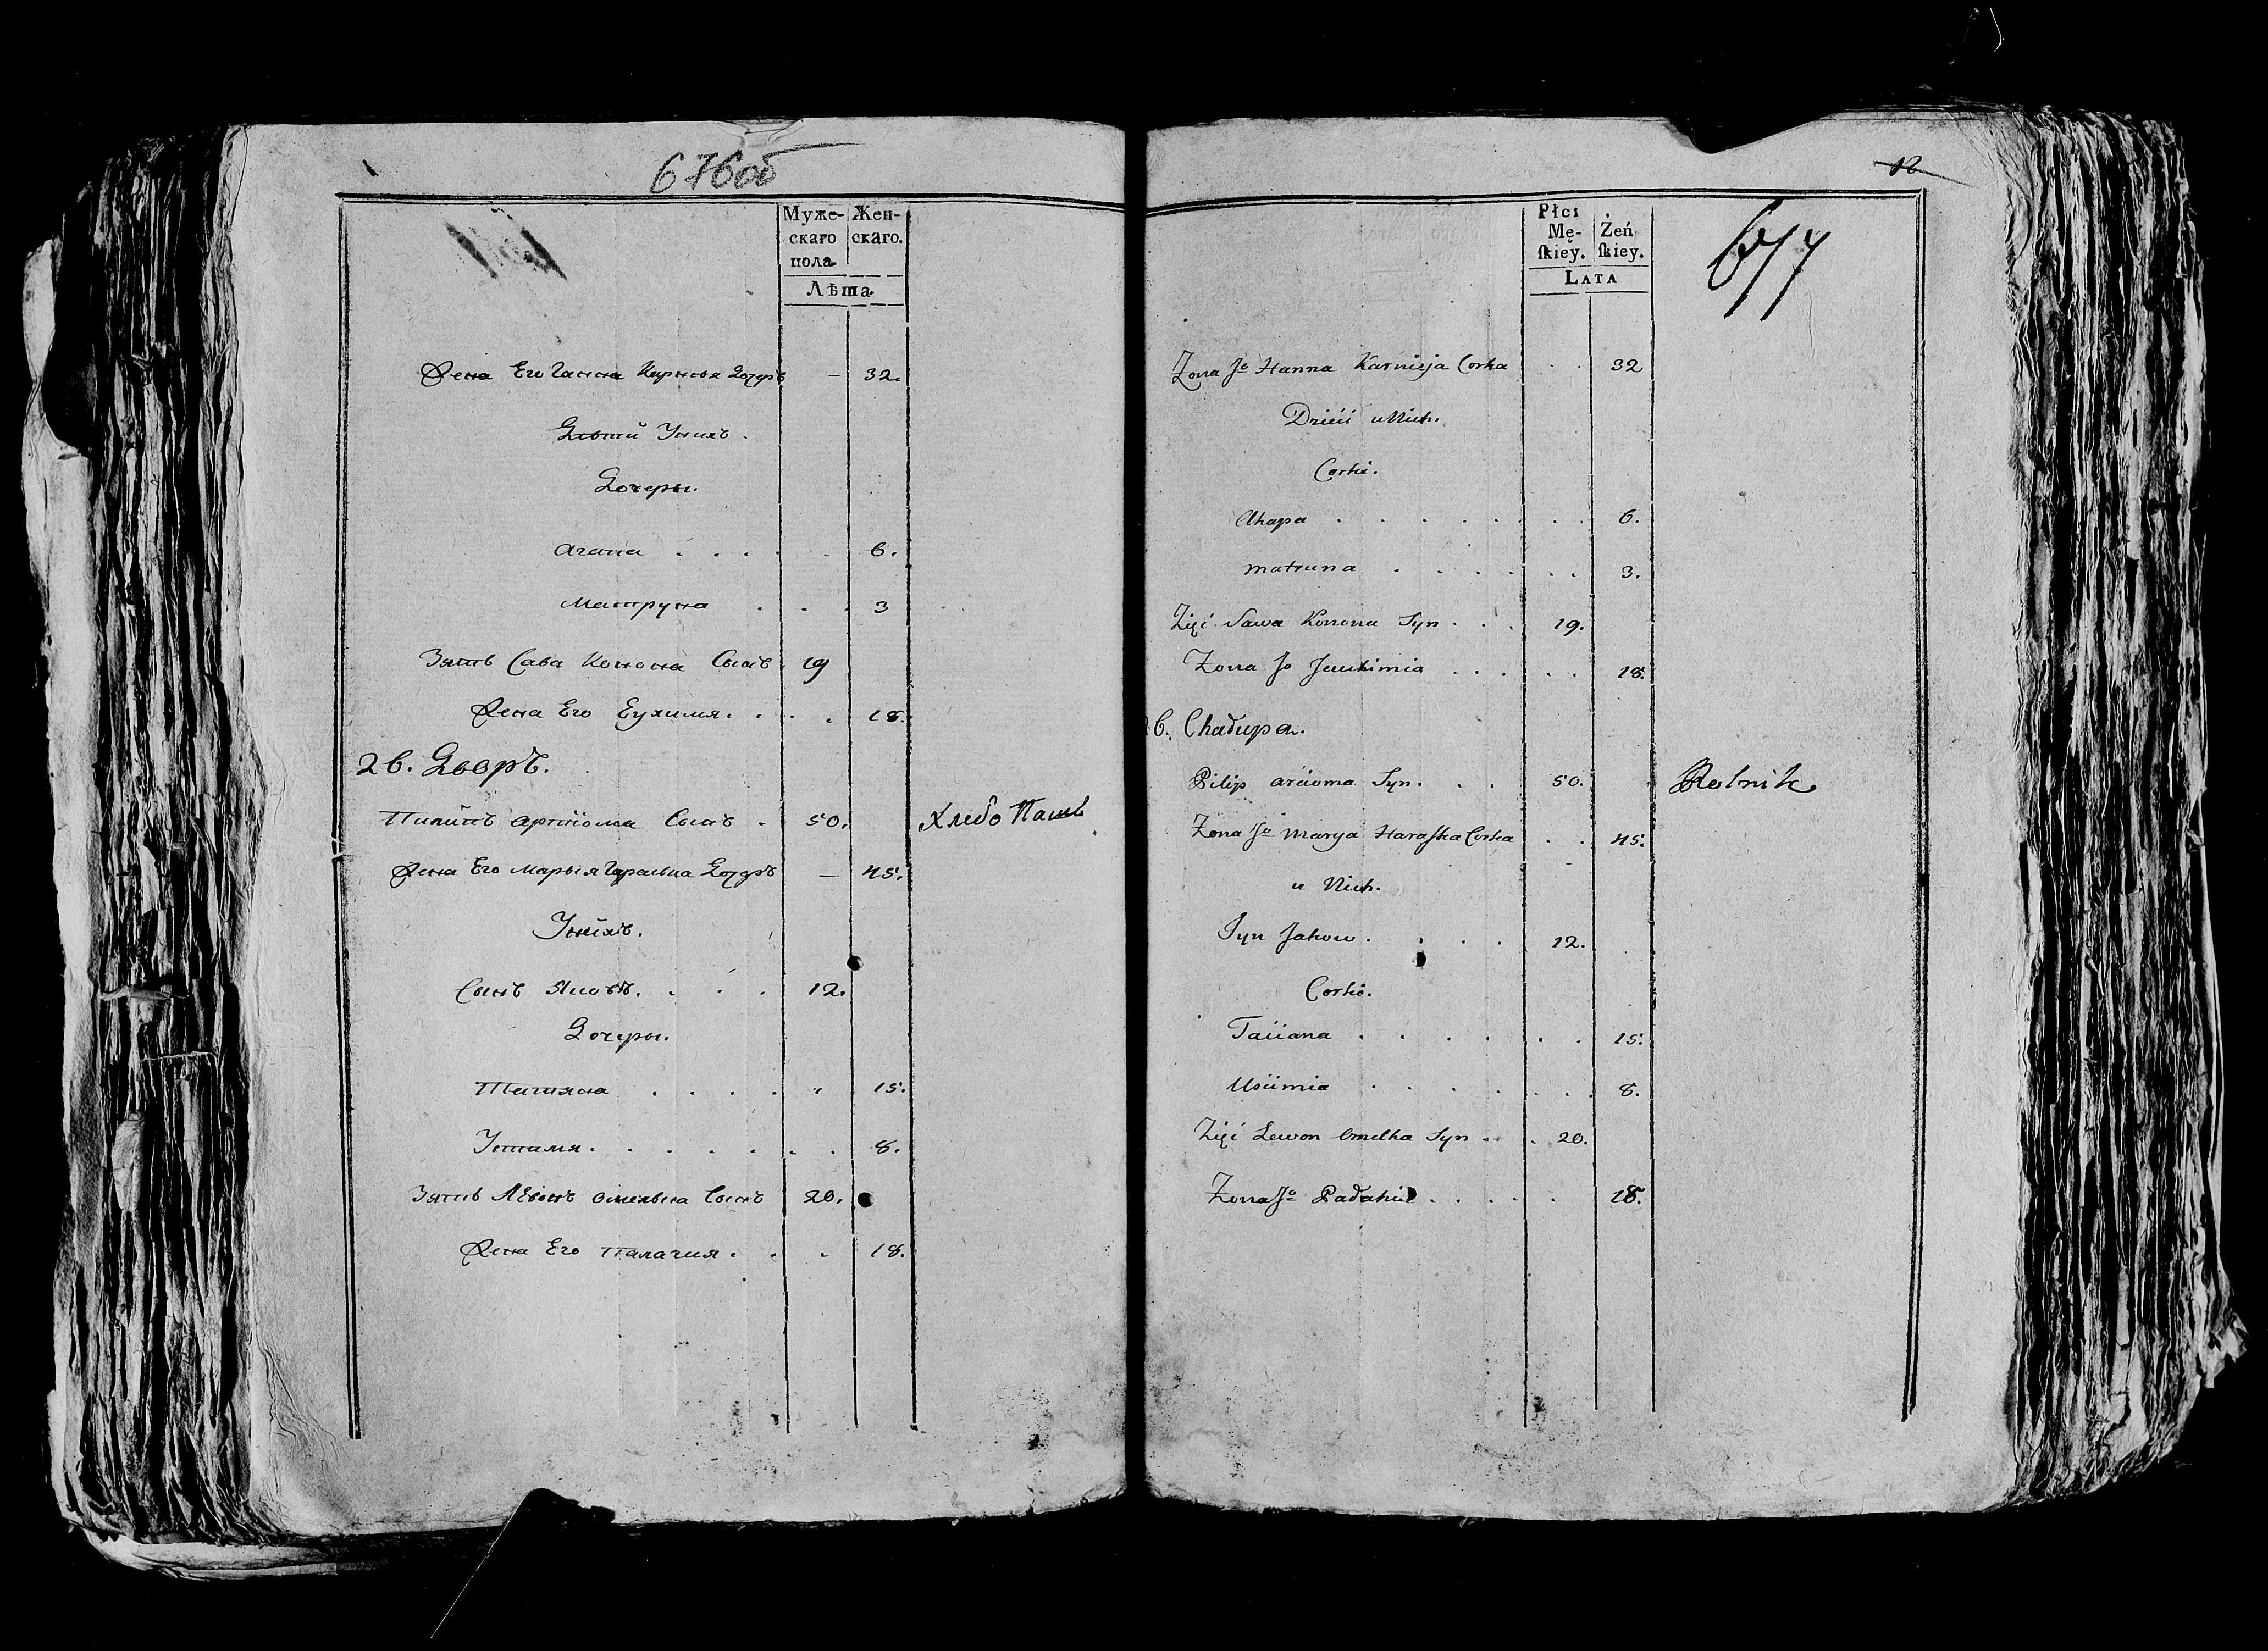 676об
Муже- Жен-
скаго скаго.
пола
Лѣта
Жена Его Ганна Карнѣя Доџръ – 32.
Дѣти Уних.
Дочеры.
Агапа . . . . . 6.
Матруна . . . 3
Зять Сава Конона Сынъ 19
Жена Его Еухимя . . . 18.
26. Дворъ.
Пилипъ Артиома Сынъ . 50. Хлебо Паш
Жена Его Марыя – 45.
Уних.
Сынъ Яковъ . . . . 12.
Дочеры.
Татяна . . . . . 15.
Устимя . . . . . . . . 8.
Зять Левонъ Сынъ 20.
Жена Его Палагия . . . 18.
12
677
Płci
Mę- Żeń
ſkiey. ſkiey.
LATA
Zona Jo Hanna Karnieja Corka . . 32
Dzieci u Nich.
Corki.
Ahapa . . . . . . . 6.
Matruna . . . . . . . 3.
Zięć Sawa Konona Syn . . . 19.
Zona Jo Jeuchimia . . . . . 18.
26. Chałupa.
Pilip Arcioma Syn . . . 50. Rolnik
Zona Jo Marya Haraſka Corka . . 45.
u Nich.
Syn Jakow . . . . 12.
Corki.
Taciana . . . . . . . 15.
Uscimia . . . . . . . 8.
Zięć Lewon Omelka Syn . . 20.
Zona Jo . . . . . 18.